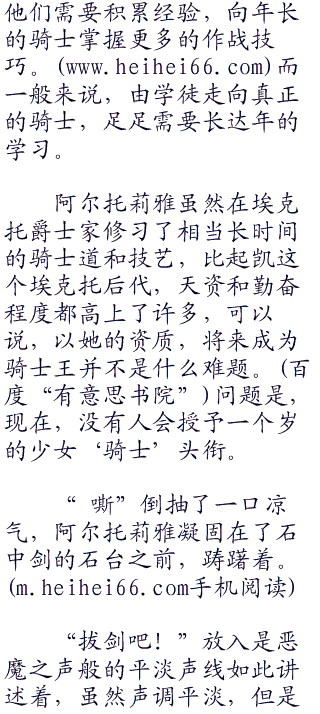 他们需要积累经验，向年长
的骑士掌握更多的作战技
巧。(www.heihei66.com)而
一般来说，由学徒走向真正
的骑士，足足需要长达年的
学习。
阿尔托莉雅虽然在埃克
托爵士家修习了相当长时间
的骑士道和技艺，比起凯这
个埃克托后代，天资和勤奋
程度都高上了许多，可以
说，以她的资质，将来成为
骑士王并不是什么难题。(百
度“有意思书院”)问题是，
现在，没有人会授予一个岁
的少女‘骑士’头衔。
“ 嘶”倒抽了一口凉
气，阿尔托莉雅凝固在了石
中剑的石台之前，踌躇着。
(m.heihei66.com手机阅读)
“拔剑吧！”放入是恶
魔之声般的平淡声线如此讲
述着，虽然声调平淡，但是